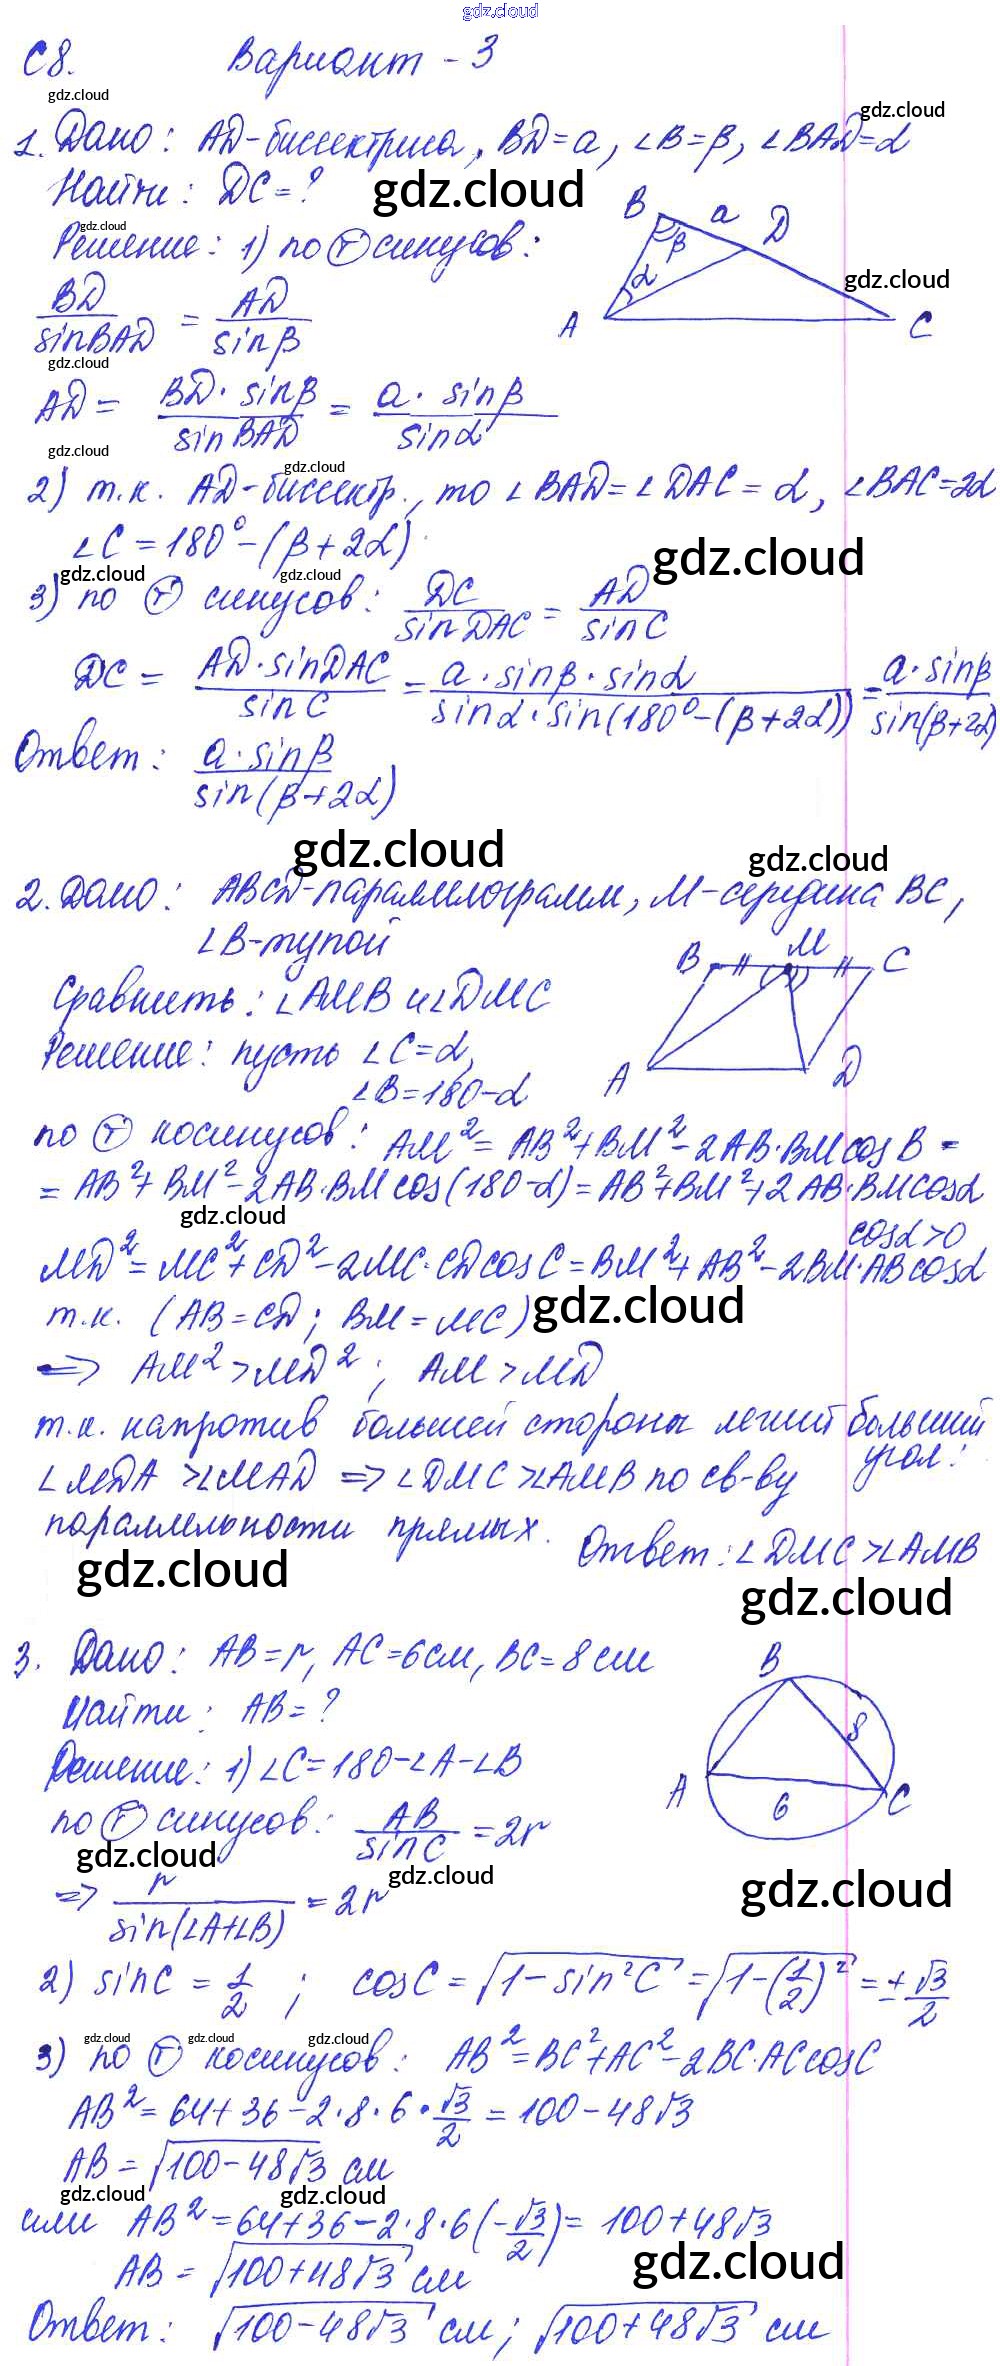 gdz.cloud
С8. Вариант - 3
gdz.cloud
gdz.cloud
1. Дано: AD-биссектриса, BD=a, ∠B=β, ∠BAD=α
Найти: DC=?
gdz.cloud
gdz.cloud
Решение: 1) по Т синусов:
B a D β α A C
gdz.cloud
BD/sinBAD = AD/sinβ
gdz.cloud
AD = BD·sinβ/sinBAD = a·sinβ/sinα
gdz.cloud
gdz.cloud
2) т.к. AD-биссектр., то ∠BAD=∠DAC=α, ∠BAC=2α
∠C=180°-(β+2α)
gdz.cloud
gdz.cloud
gdz.cloud
3) по Т синусов: DC/sinDAC = AD/sinC
DC = AD·sinDAC/sinC = a·sinβ·sinα/sinα·sin(180°-(β+2α)) = a·sinβ/sin(β+2α)
Ответ: a·sinβ/sin(β+2α)
gdz.cloud
gdz.cloud
2. Дано: ABCD-параллелограмм, M-середина BC,
∠B-тупой
B M C A D
Сравнить: ∠AMB и ∠DMC
Решение: пусть ∠C=α,
∠B=180-α
по Т косинусов: AM²=AB²+BM²-2AB·BMcosB=
=AB²+BM²-2AB·BMcos(180-α)=AB²+BM²+2AB·BMcosα
gdz.cloud
cosα>0
MD²=MC²+CD²-2MC·CDcosC=BM²+AB²-2BM·ABcosα
т.к. (AB=CD; BM=MC)
gdz.cloud
=> AM²>MD²; AM>MD
т.к. напротив большей стороны лежит больший
угол:
∠MDA>∠MAD => ∠DMC>∠AMB по св-ву
параллельности прямых.
Ответ: ∠DMC>∠AMB
gdz.cloud
gdz.cloud
3. Дано: AB=r, AC=6см, BC=8см
Найти: AB=?
B 8 A 6 C
Решение: 1) ∠C=180-∠A-∠B
по Т синусов: AB/sinC = 2r
gdz.cloud
gdz.cloud
gdz.cloud
=> r/sin(∠A+∠B) = 2r
2) sinC = 1/2; cosC = √(1-sin²C) = √(1-(1/2)²) = ±√3/2
gdz.cloud
gdz.cloud
gdz.cloud
3) по Т косинусов: AB²=BC²+AC²-2BC·ACcosC
AB²=64+36-2·8·6·√3/2=100-48√3
AB=√(100-48√3) см
gdz.cloud
gdz.cloud
или AB²=64+36-2·8·6(-√3/2)=100+48√3
gdz.cloud
AB=√(100+48√3) см
Ответ: √(100-48√3) см; √(100+48√3) см